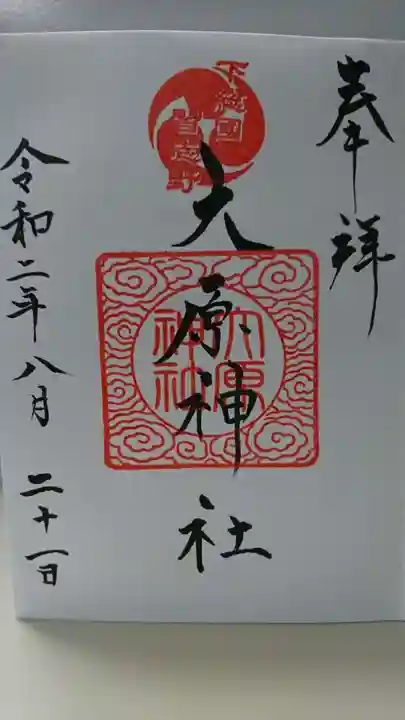 奉拝
下総國
習志野
大原神社
大原
神社
令和二年八月二十一日